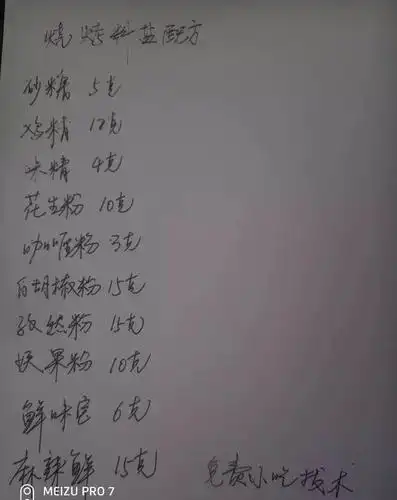 烧烤料盐配方
砂糖 5克
鸡精 12克
味精 4克
花生粉 10克
咖喱粉 3克
白胡椒粉 15克
孜然粉 15克
腰果粉 10克
鲜味宝 6克
麻辣鲜 15克 免费小吃技术
MEIZU PRO 7